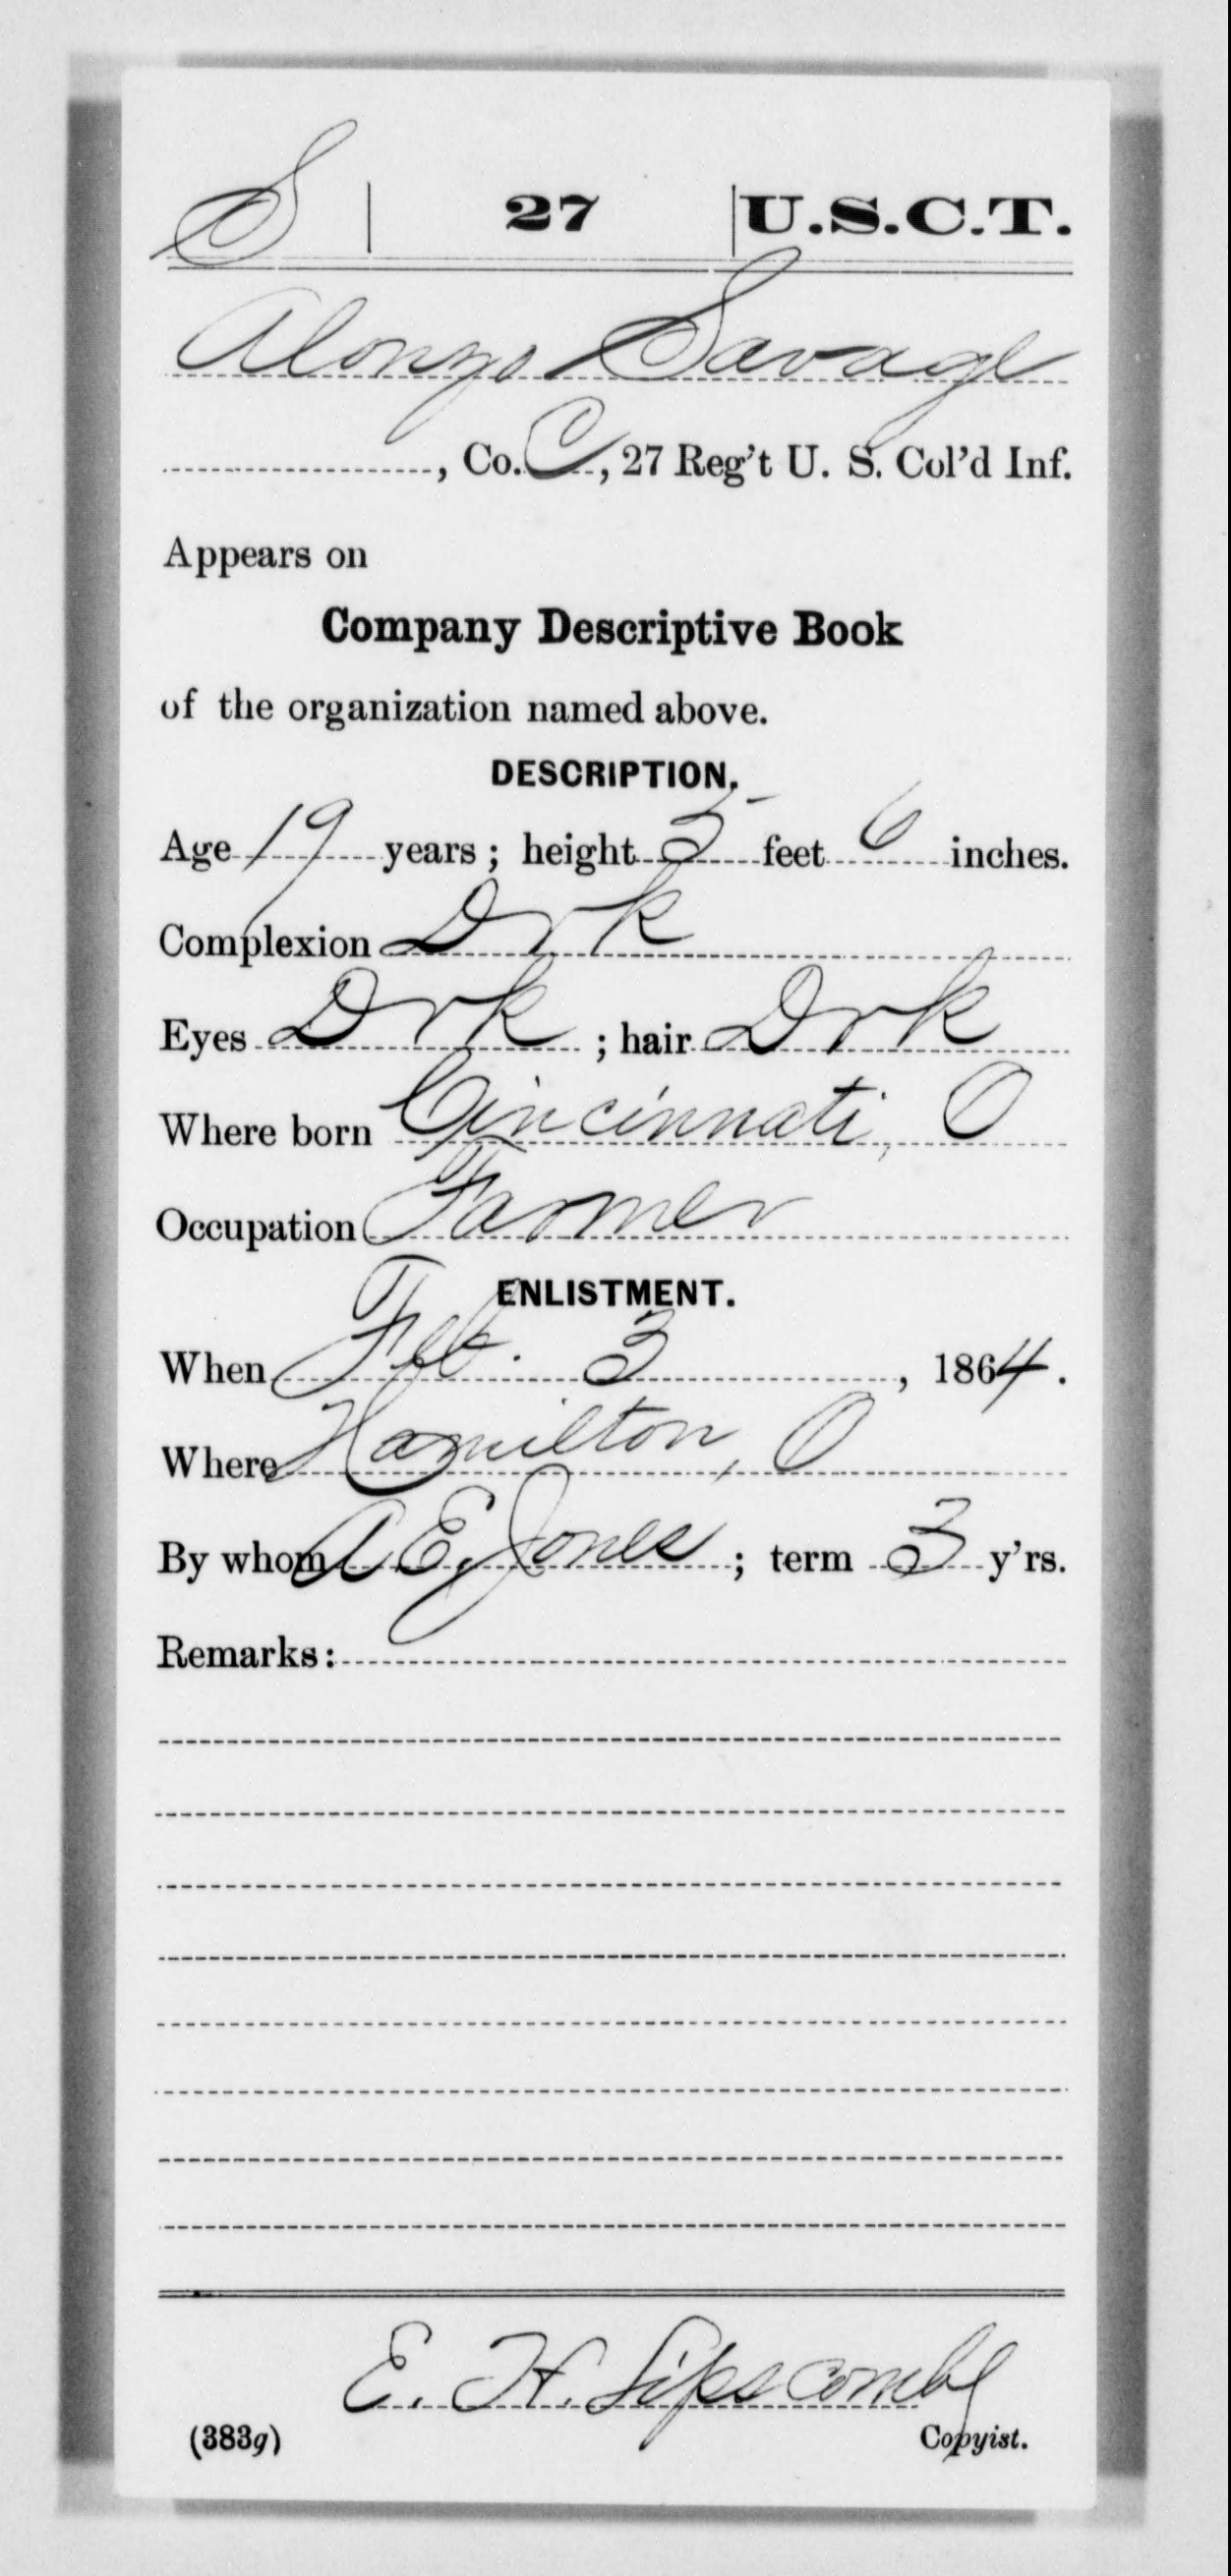 S | 27 | U.S.C.T.
Alonzo Savage
, Co. C, 27 Reg't U. S. Col'd Inf.
Appears on
Company Descriptive Book
of the organization named above.
DESCRIPTION.
Age 19 years; height 5 feet 6 inches.
Complexion Drk
Eyes Drk; hair Drk
Where born Cincinnati, O
Occupation Farmer
ENLISTMENT.
When Feb. 3, 1864.
Where Hamilton, O
By whom A E, Jones; term 3 y'rs.
Remarks:
E. H. Lipscomb
(383g) Copyist.